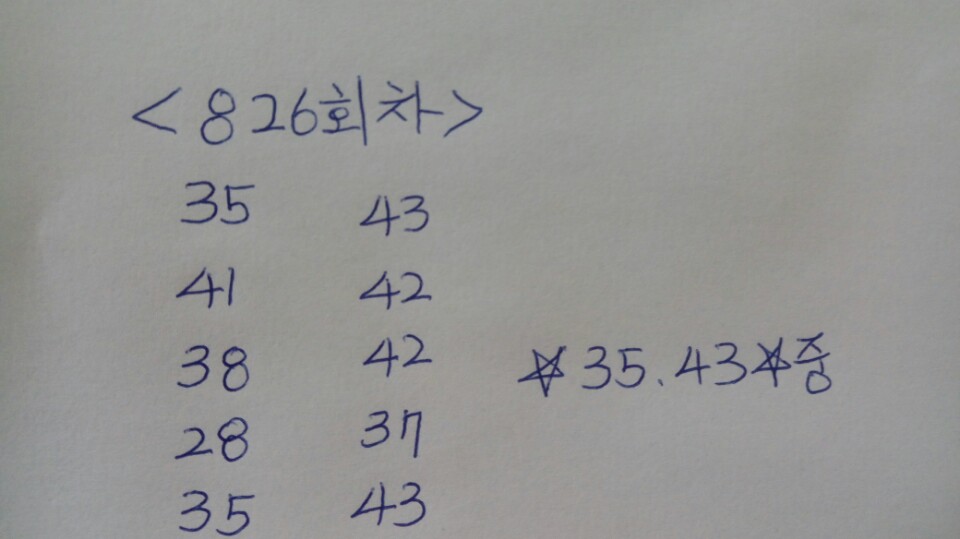 <826회차>
35 43
41 42
38 42
☆35.43☆중
28 37
35 43